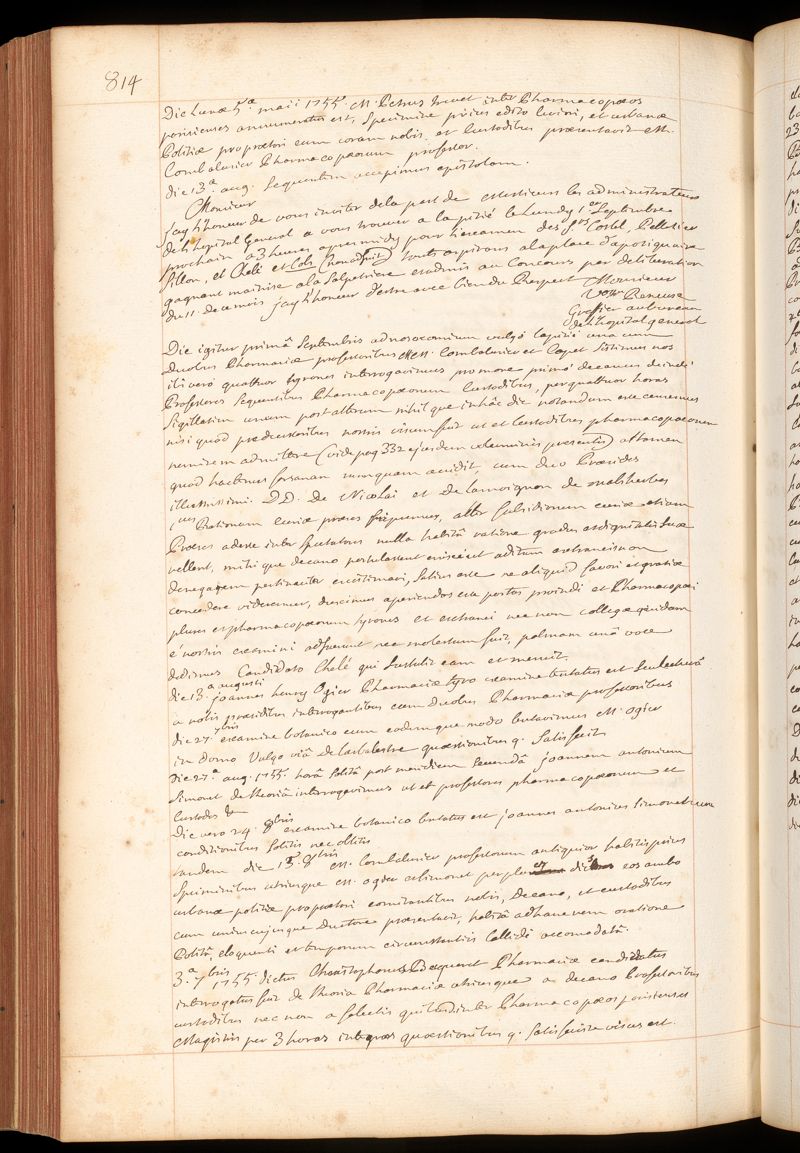 814
Die Lunae 5.a maii 1755. M. Petrus trevet inter Pharmacopaeos
parisienses annumeratus est, Specimine prius edito leviori, et urbanae
Politiae propraetori eum coram nobis, et Custodibus praesentavit M.
Combalusier Pharmacopaeorum professor.
die 13.a aug. Sequentem accepimus epistolam.
Monsieur
J'ay l'honneur de vous inviter de la part de Messieurs les administrateurs
de l'hopital General a vous trouver a la pitié le Lundy 1.er Septembre
prochain a 3 heures apres midy pour l'examen des Srs Costel, Pelletier
Sillon, et Chelé et Cols (non adfuit) touts aspirans a la place d'apotiquaire
gagnant maitrise a la Salpetriere et admis au Concours par deliberation
du 11. de ce mois j'ay l'honneur d'estre avec bien du Respect Monsieur
Votre
Greffier au bureau
de l'hopital general
Die igitur primâ Septembris ad nosocomium vulgò la pitié una cum
Duobus Pharmaciae professoribus MM. Combalusier et Capet Sistimus nos
ibi verò quattuor tyrones interrogavimus pro more primò decanus deindè
Professores Sequentibus Pharmacopaeorum Custodibus, per quattuor horas
Sigillatim unum post alterum nihilque in hâc die notandum esse censemus
nisi quòd praedecessoribus nostris visum fuit ut et Custodibus pharmacopaeorum
neminem admittere (vide pag 332 ejusdem voluminis praesentis) attamen
quòd hactenus forsan nunquam accidit, cum duo Praesides
illustrissimi. D D. De Nicolai et De lamoignon de malsherbes
Rationum curiae praeses supremus, alter Subsidiorum curiae etiam
Praeses adesse inter Spectatores nulla habitâ ratione gradus et dignitatis Suae
vellent, mihi que decano postulassent enixè ut aditum extraneis non
denegarem pertinaciter existimavi, Satius esse aliquid favori et gratiae
concedere videremur, duximus aperiendas esse portas proindè et Pharmacopaei
plures et pharmacopaeorum tyrones et extranei nec non collegae quidam
è nostris examini adfuerunt nec molestum fuit, palmam unâ voce
dedimus Candidato Chelé qui Sustulit eam et meruit.
die 13.a augusti joannes henry Ogier Pharmaciae tyro examine tentatus est
a nobis praesidibus interrogantibus cum duobus Pharmaciae professoribus
die 27. 7bris examine botanico eum eodemque modo tentavimus M. Ogier
in domo Vulgo viâ de l'arbalestre quaestionibus q. Satisfecit
Die 27.a aug. 1755. horâ Solitâ post meridiem Secundâ joannem antonium
Simonet de theoriâ interrogavimus ut et professores pharmacopaeorum et
Custodes &c
Die vero 24. 8bris examine botanico tentatus est joannes antonius Simonet
conditionibus Solitis nec oblitis
tandem die 15.a 8bris M. Combalusier professorum antiquior habitis prius
Speciminibus utriusque M. ogier et Simonet eos ambo
urbanae politiae propraetori comitantibus nobis, Decano, et custodibus
cum uniuscujusque Ductore praesentavit, habitâ ad hanc rem oratione
Politâ, eloquenti et temporum circumstantiis Callidè accomodatâ.
3.a 7bris 1755. dictus Christophorus Becqueret Pharmaciae candidatus
interrogatus fuit de theoria Pharmaciae utriusque a decano Professoribus
custodibus nec non a Selectis quibusdam inter Pharmacopaeos parisienses
Magistris per 3 horas integras quaestionibus q. Satisfecisse visus est.